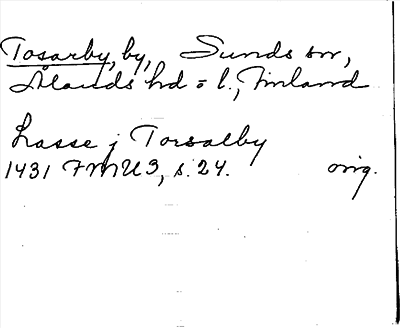 Tosarby, by, Sunds sn,
Ålands hd o l., Finland
Lasse j Torsalby
1431 FMU3, s. 24. orig.